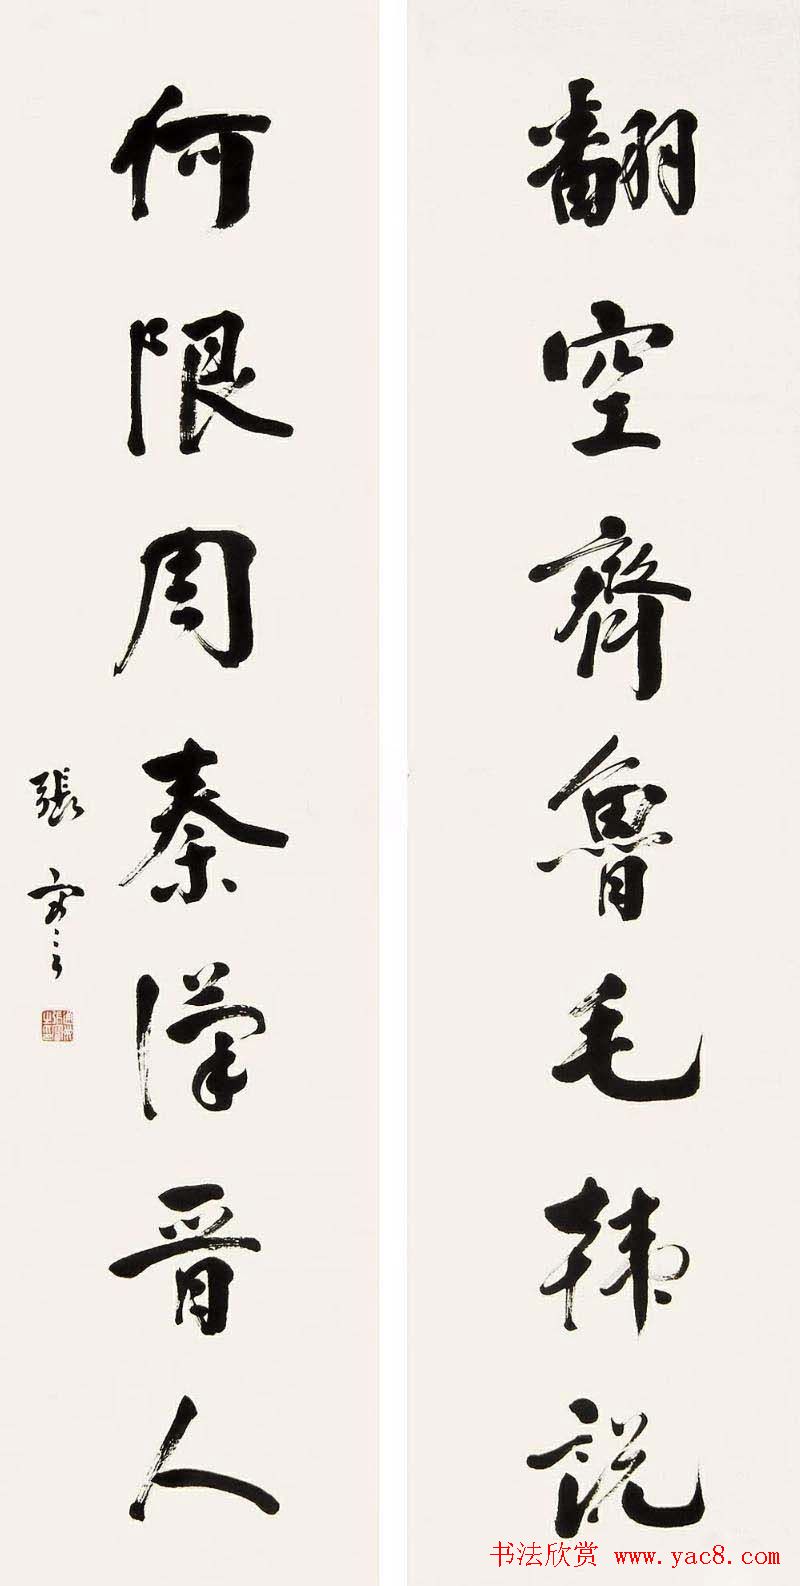 翻空齊魯毛韩説
何限周秦漢晋人
張寒
书法欣赏 www.yac8.com